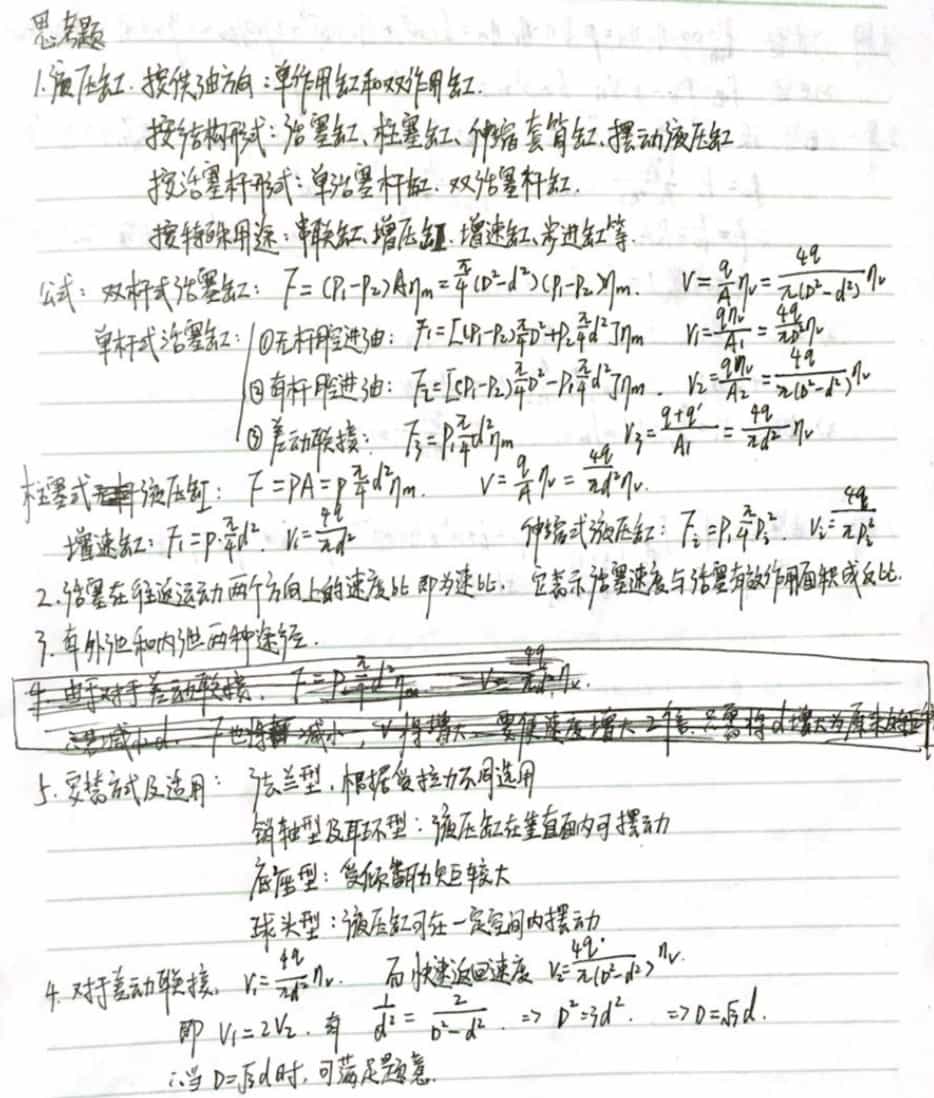 思考题
1.液压缸.按供油方向:单作用缸和双作用缸.
按结构形式:活塞缸、柱塞缸、伸缩套筒缸、摆动液压缸
按活塞杆形式:单活塞杆缸、双活塞杆缸.
按特殊用途:串联缸、增压缸、增速缸、步进缸等.
公式: 双杆式活塞缸: F=(P₁-P₂)Aηm=π/4(D²-d²)(P₁-P₂)ηm. V=q/A ηv=4q/π(D²-d²) ηv
单杆式活塞缸: ①无杆腔进油: F₁=[(P₁-P₂)π/4D²+P₂π/4d²]ηm V₁=qηv/A₁=4q/πD² ηv
②有杆腔进油: F₂=[(P₁-P₂)π/4D²-P₁π/4d²]ηm. V₂=qηv/A₂=4q/π(D²-d²) ηv
③差动联接: F₃=P₁π/4d²ηm V₃=q+q'/A₁=4q/πd² ηv
柱塞式液压缸: F=PA=Pπ/4d²ηm. V=q/A ηv=4q/πd² ηv.
增速缸: F₁=P·π/4d². V₁=4q/πd² 伸缩式液压缸: F₂=P₁π/4D₂² V₂=4q/πD₂²
2.活塞在往返运动两个方向上的速度比即为速比. 它表示活塞速度与活塞有效作用面积成反比.
3.有外泄和内泄两种途径.
4.由于对于差动联接. F=P π/4d²ηm V=4q/πd² ηv.
减小d. F也将减小, V将增大 要使速度增大2倍.只需将d增大为原来的
5.安装方式及适用: 法兰型,根据受拉力不同选用
销轴型及耳环型:液压缸在垂直面内可摆动
底座型:受倾翻力矩较大
球头型:液压缸可在一定空间内摆动
4.对于差动联接, V₁=4q/πd² ηv. 而快速返回速度 V₂=4q/π(D²-d²) ηv.
即 V₁=2V₂.有 1/d²=2/D²-d². => D²=3d². => D=√3d.
∴当D=√3d时,可满足题意.